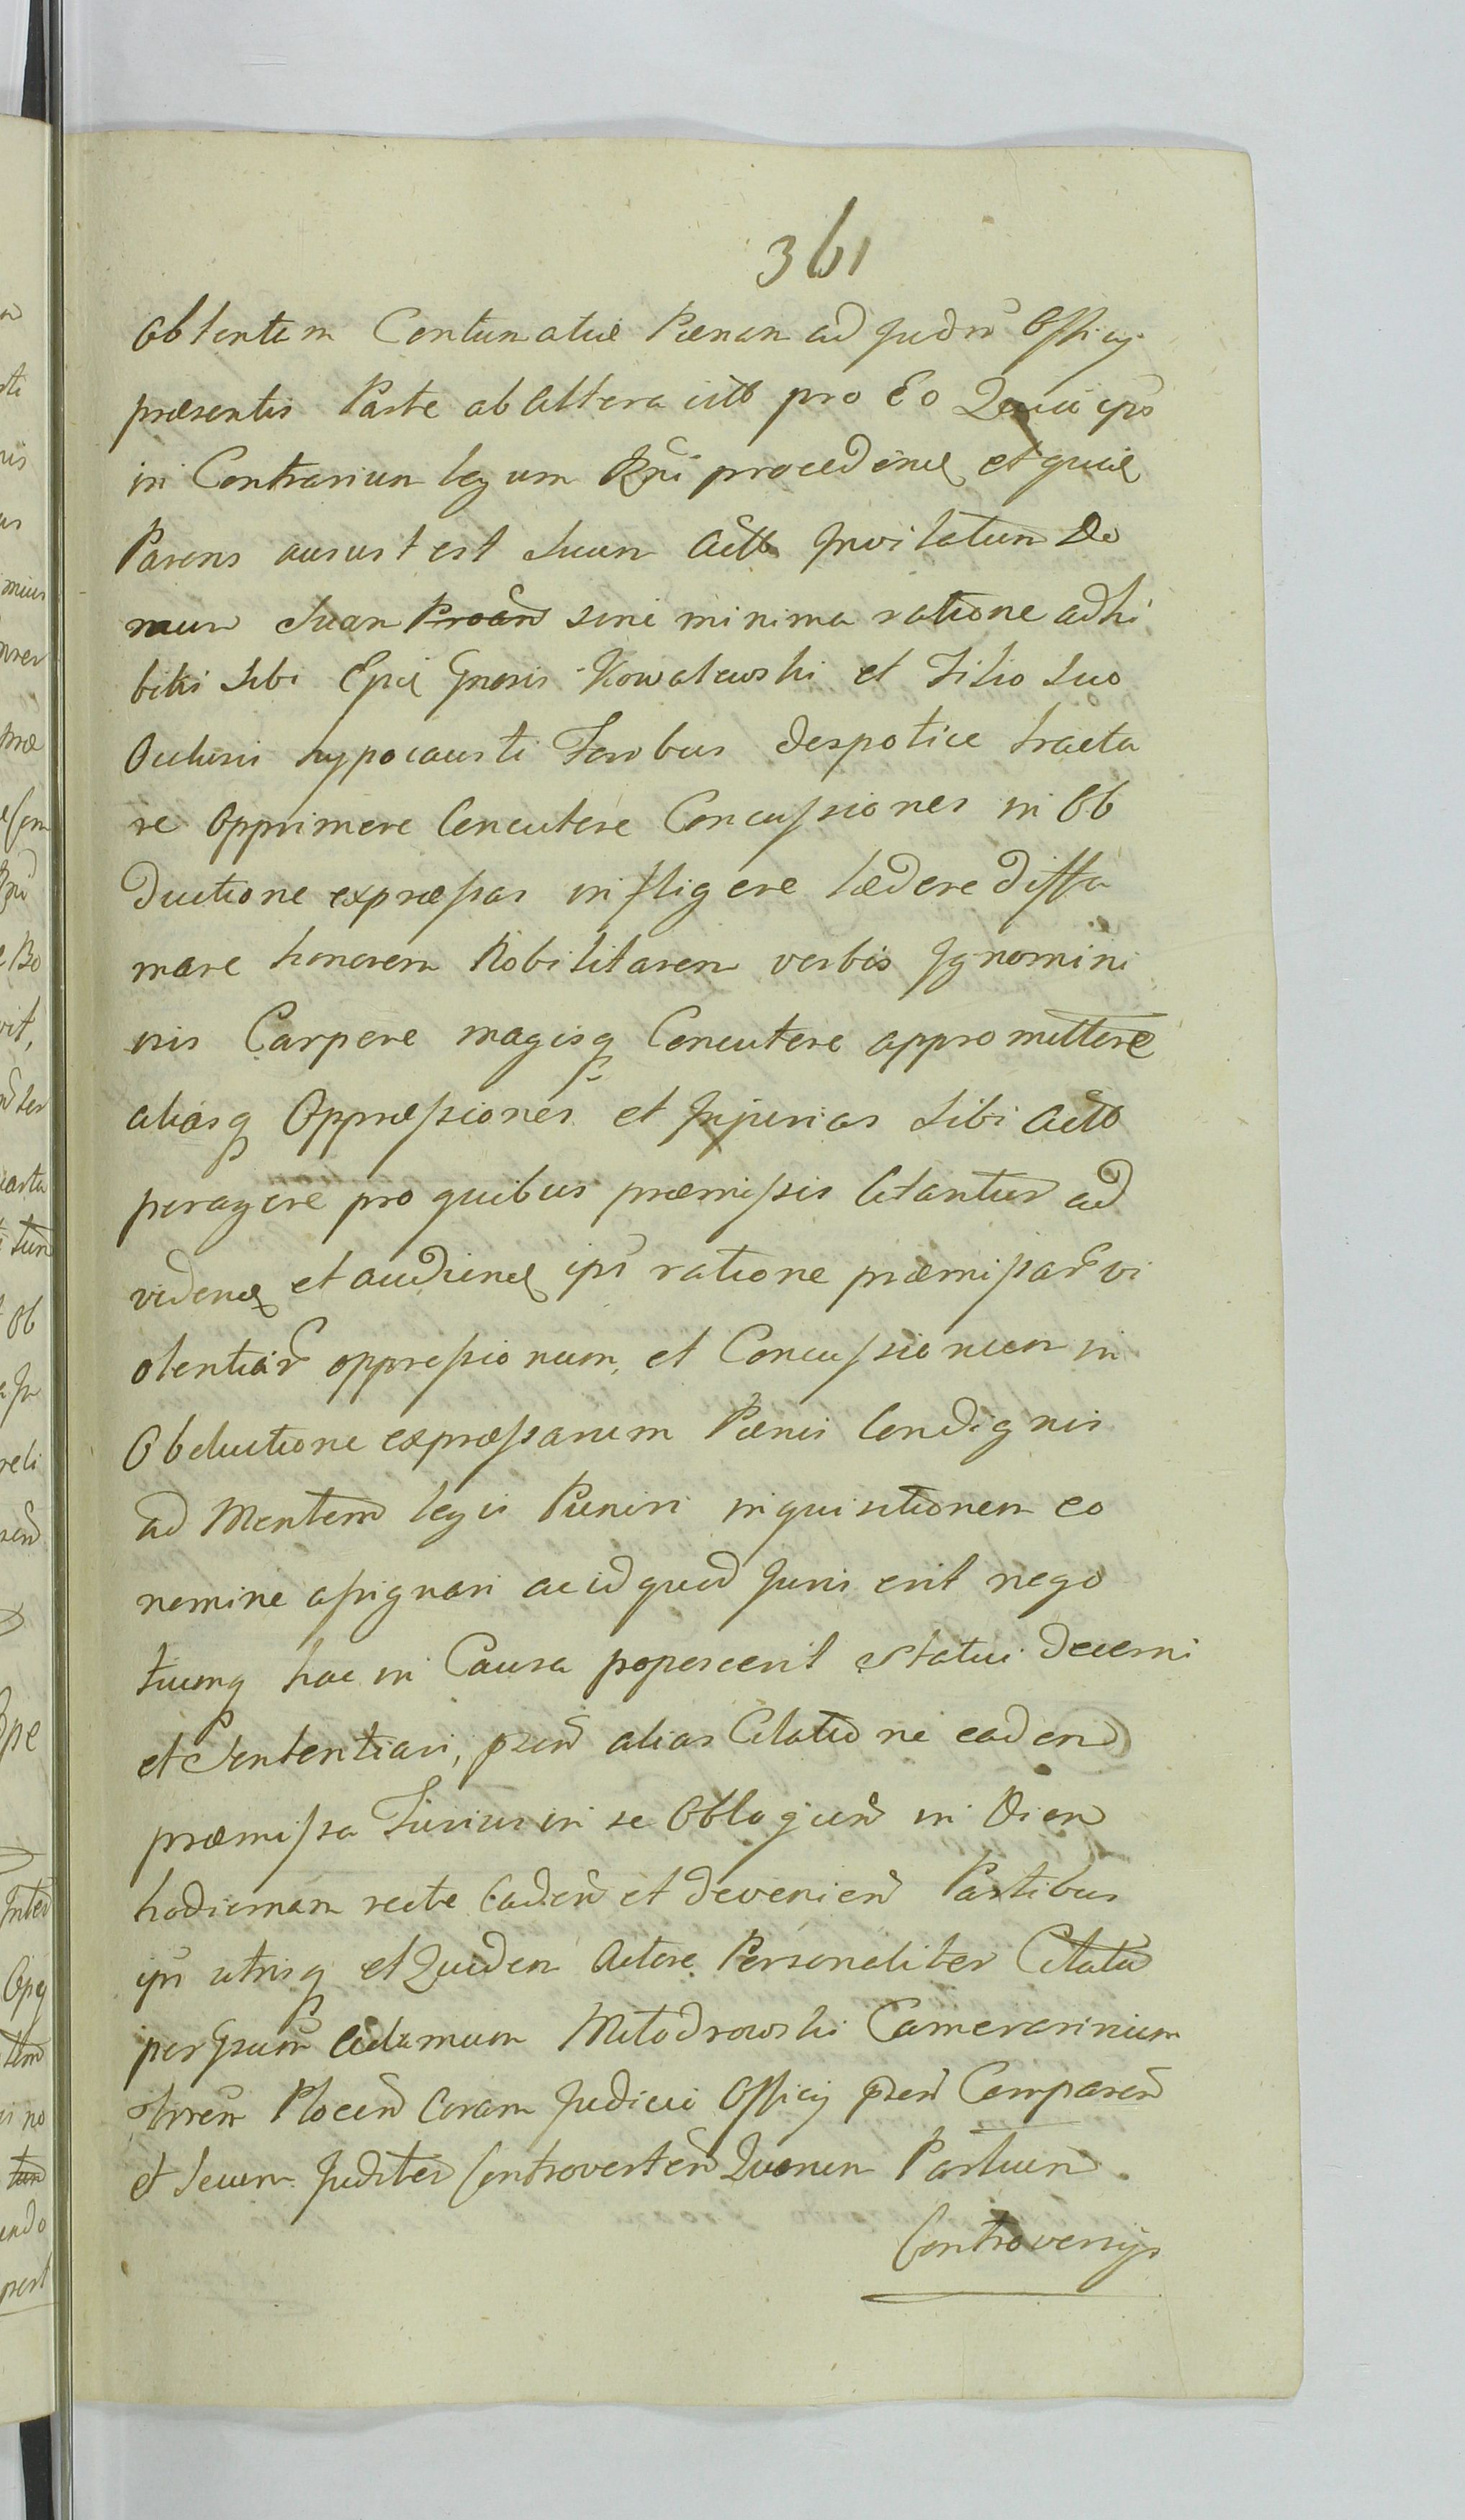 361
obtentam Contumatiæ Pænam ad Judm̃ Officij
præsentis Parte ab altera citõ pro Eo Quia ipsõ
in Contrarium legum Rg̃ni procedendõ et quia
Parens ausus est suum Actõ Invitatum Do
mum suam Proam̃ sine minima ratione adhi
bitis sibi Gnosis Kowalewski et Filio suo
Occlusis hypocausti Foribus despotice tracta
re Opprimere Concutere Concussiones in Ob
ductione expræssas infligere lædere diffa
mare honorem Nobilitarem verbis Ignomini
osis Carpere magisq Concutere appromittere
aliasq Oppræssiones et Injurias sibi Actõ
peragere pro quibus præmissis Citantur ad
videndũ et audiendũ ipsõ ratione præmissar̃ vi
olentiar̃ oppressionum, et Concussionum in
Obductione expræssarum Pænis Condignis
ad Mentem legis Puniri inquisitionem eo
nomine assignari ac id quod Juris erit nego
tiumq hac in Causa poposcerit statui decerni
et Sententiari, præsen̄ alias Citatione eadem
præmissa Fusius in se Obloquen̄ in Diem
hodiernam recte Caden̄ et devenien̄ Partibus
ipsis utrisq et Quidem Actore Personaliter Citato
per Gsum̃ Adamum Mitodrowski Camerarium
Trren̄ Plocen̄ Coram Judicio Officij præsen̄ Comparen̄
et secum Judrter Controverten̄ Quarum Partium
Controversijs